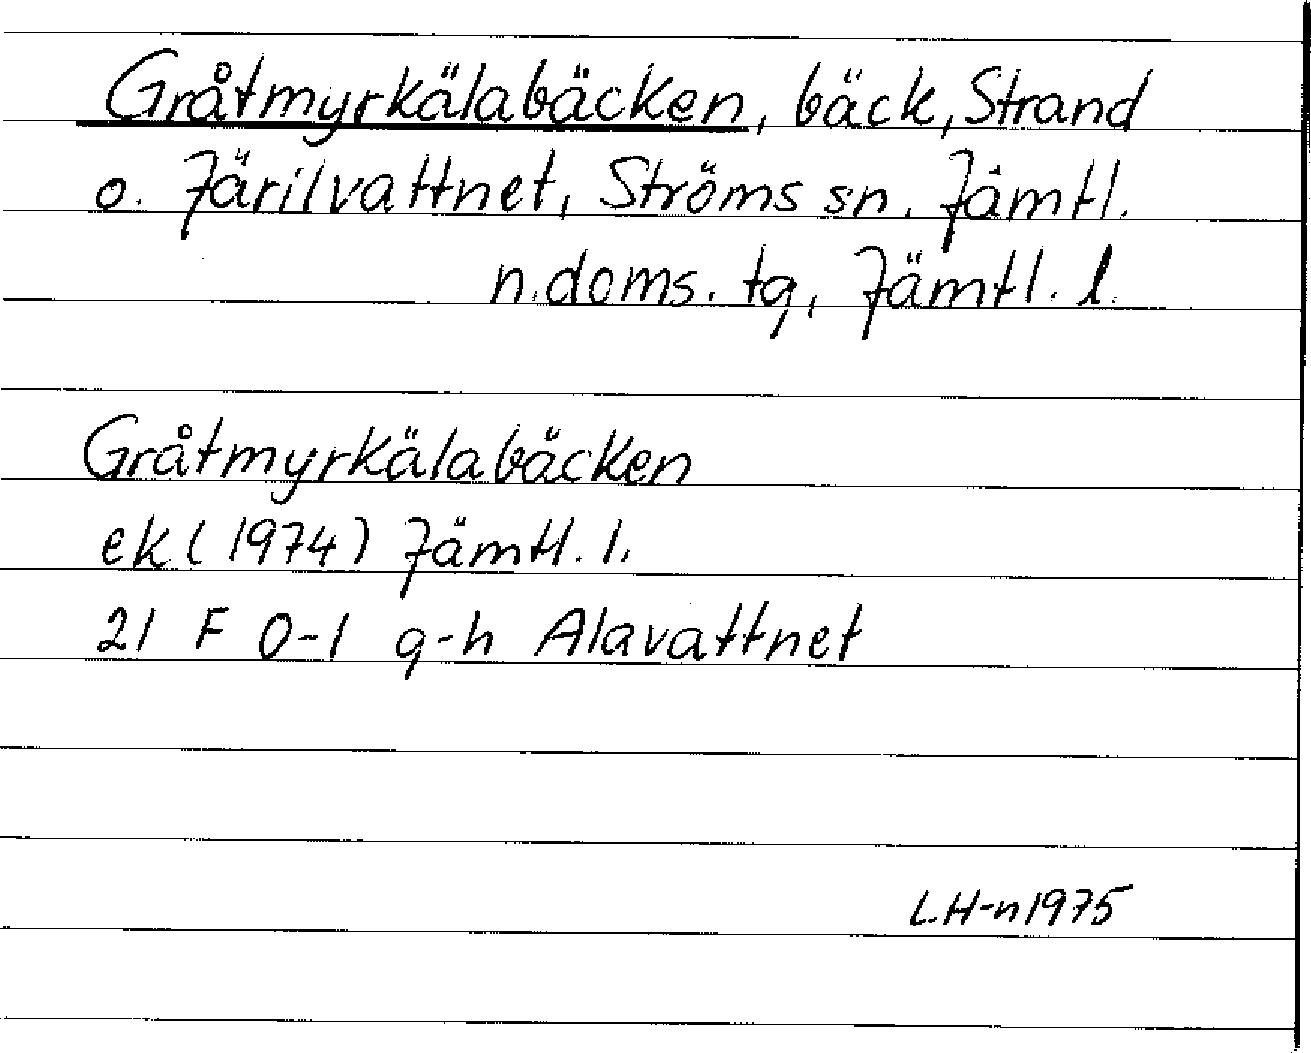 Gråtmyrkälabäcken, bäck, Strand
o. Järilvattnet, Ströms sn. Jämtl.
n. doms. tg, Jämtl. l.
Gråtmyrkälabäcken
ek (1974) Jämtl. l.
21 F 0-1 g-h Alavattnet
L.H-n 1975